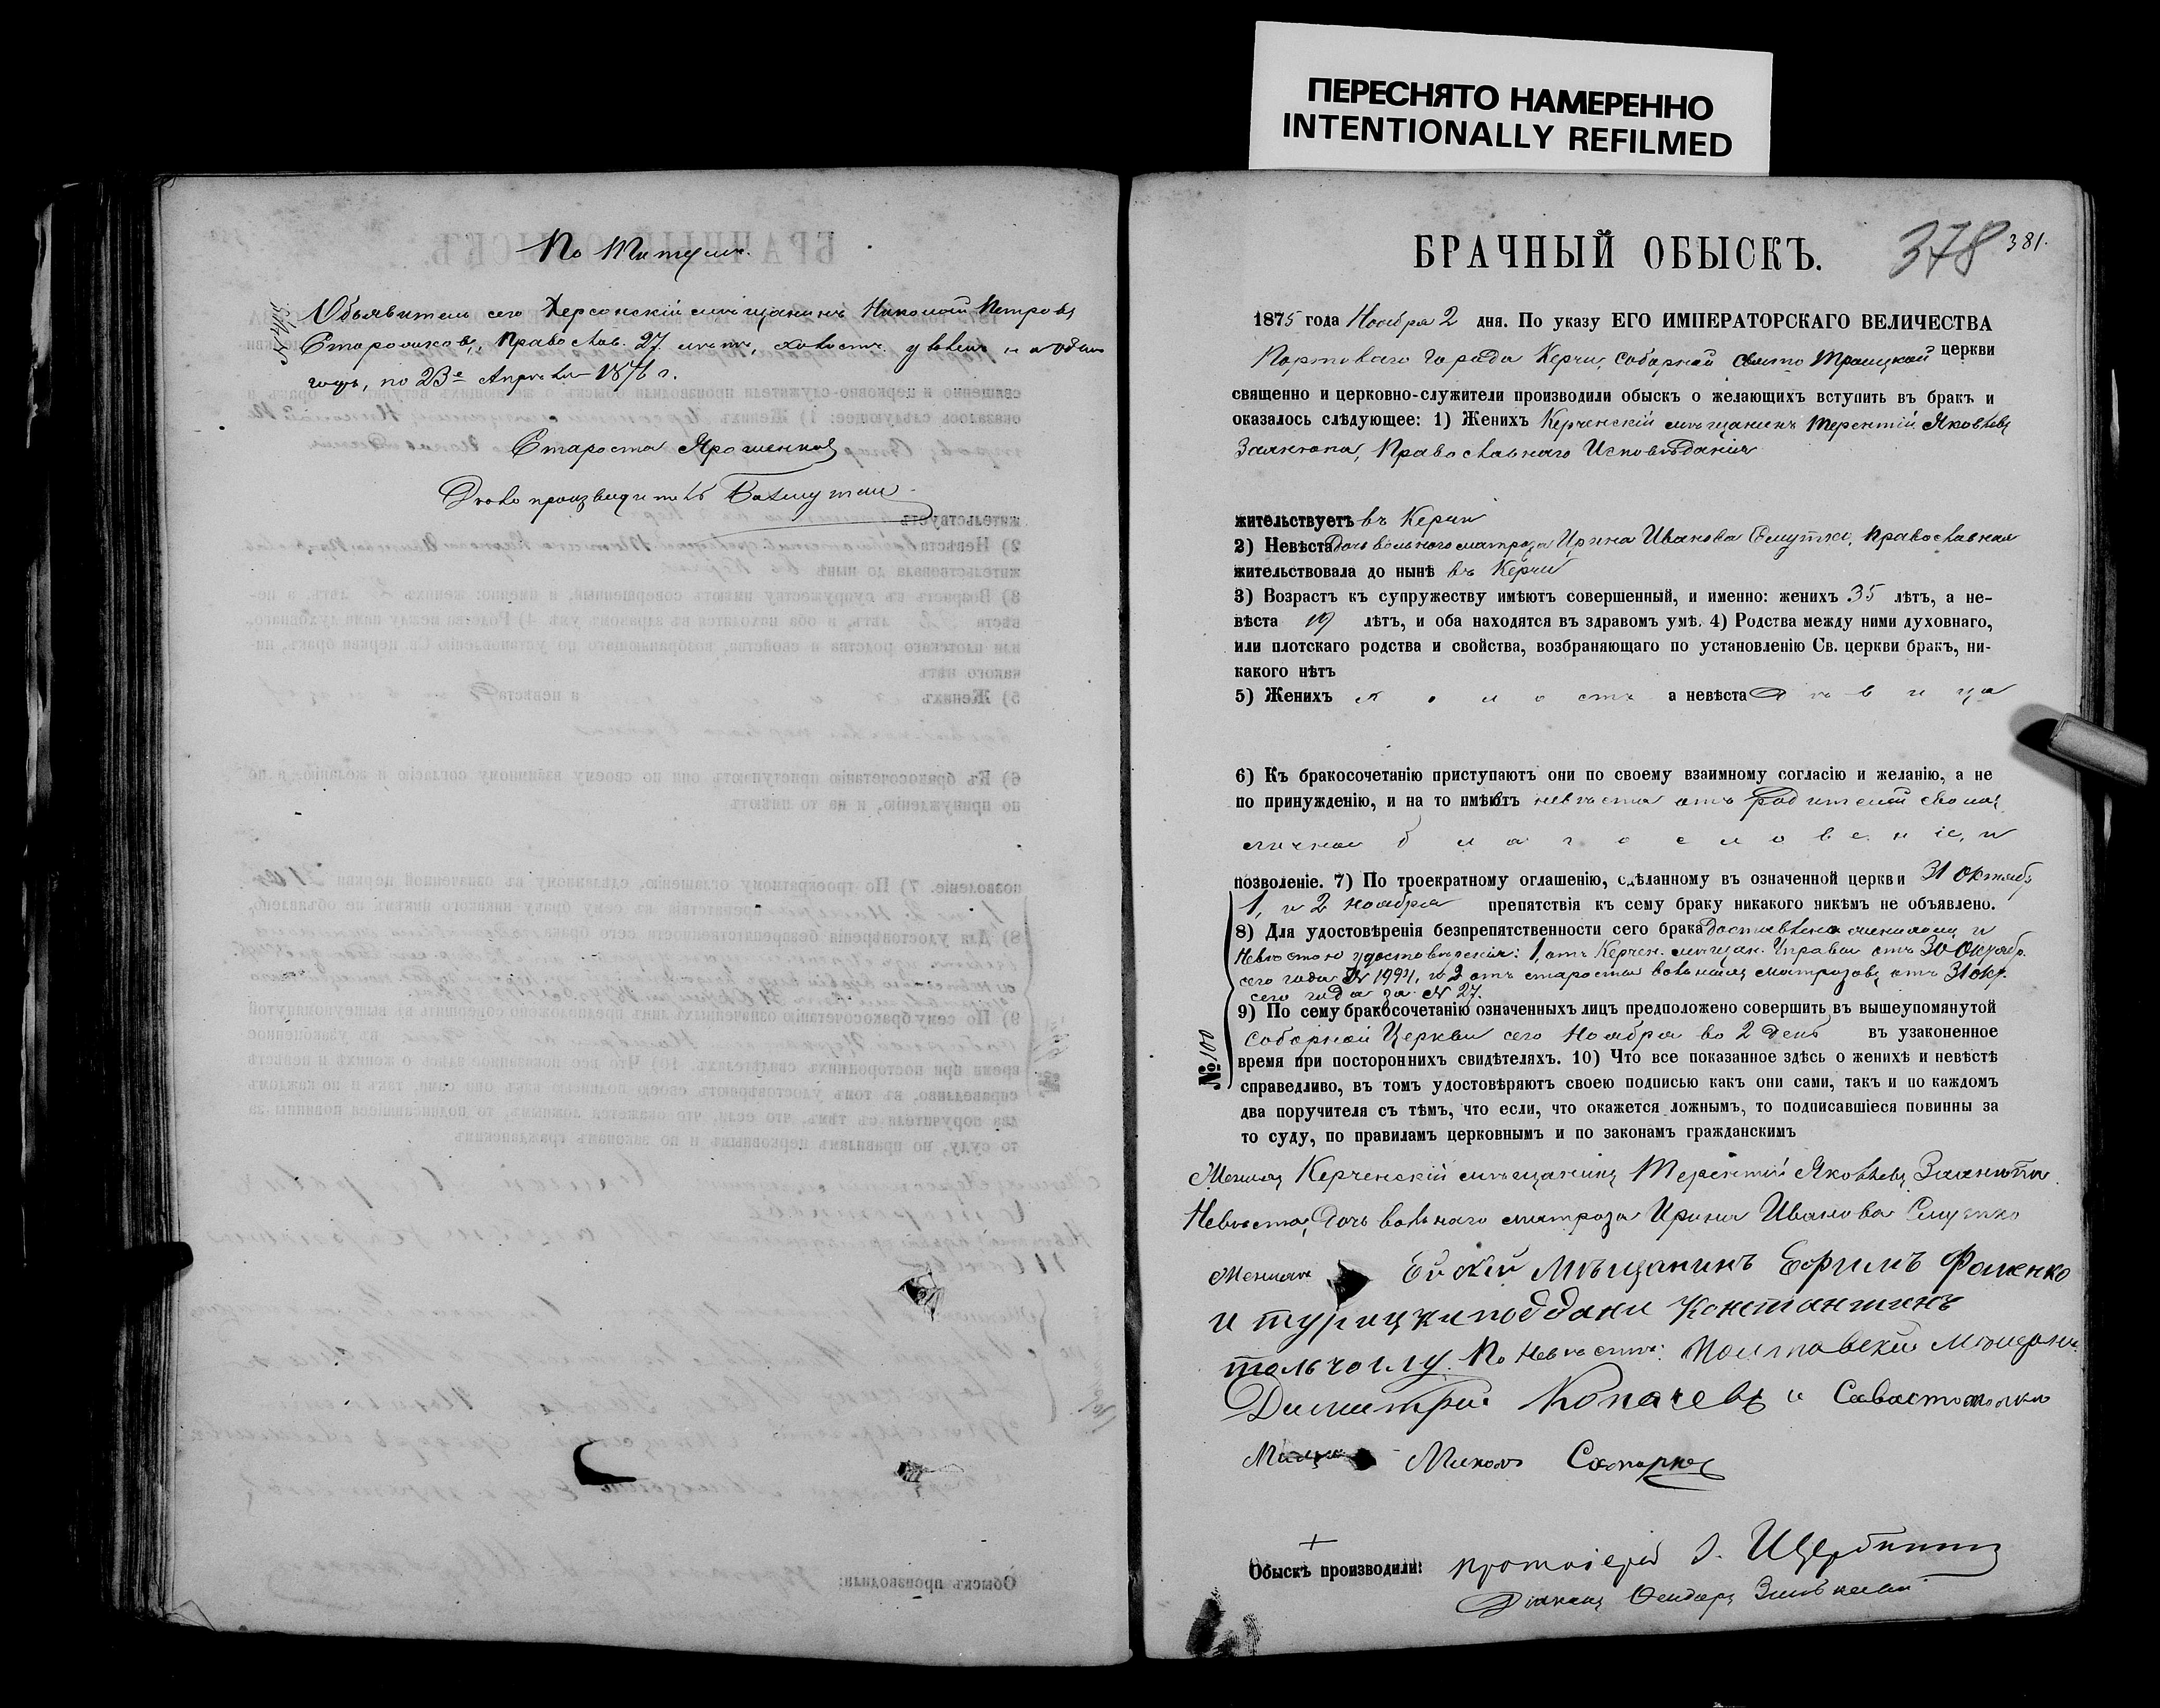 ПЕРЕСНЯТО НАМЕРЕННО
INTENTIONALLY REFILMED
По
Объявитель сего Херсонскій мѣщанинъ Николай Петровъ
Православ. 27 лѣтъ, холостъ, уволенъ на одинъ
годъ, по 23е Апрѣля 1876 г.
Староста Ярошенко
Дѣлопроизводитель
БРАЧНЫЙ ОБЫСКЪ.
378
381.
1875 года Ноября 2 дня. По указу ЕГО ИМПЕРАТОРСКАГО ВЕЛИЧЕСТВА
Портоваго города Керчи, соборной Свято Троицкой церкви
священно и церковно-служители производили обыскъ о желающихъ вступить въ бракъ и
оказалось слѣдующее: 1) Женихъ Керченскій мѣщанинъ Терентій Яковлевъ
Православнаго Исповѣданія
жительствуетъ въ Керчи
2) Невѣста Дочь вольнаго матроза Ирина Иванова Православная
жительствовала до нынѣ въ Керчи
3) Возрастъ къ супружеству имѣютъ совершенный, и именно: женихъ 35 лѣтъ, а не-
вѣста 19 лѣтъ, и оба находятся въ здравомъ умѣ. 4) Родства между ними духовнаго,
или плотскаго родства и свойства, возбраняющаго по установленію Св. церкви бракъ, ни-
какого нѣтъ
5) Женихъ холостъ а невѣста Дѣвица
6) Къ бракосочетанію приступаютъ они по своему взаимному согласію и желанію, а не
по принужденію, и на то имѣютъ невѣста отъ родителей своихъ
личное благословеніе, и
позволеніе. 7) По троекратному оглашенію, сдѣланному въ означенной церкви 31 Октября
1, и 2 Ноября препатствія къ сему браку никакого никѣмъ не объявлено.
8) Для удостовѣренія безпрепятственности сего брака доставлены женихомъ и
Невѣстою удостовѣренія: 1, отъ Керчен. мѣщан. Управы отъ 30 Октябр.
сего года № 1994, и 2 отъ старосты вольныхъ матрозовъ отъ 31 окт.
сего года за № 27.
9) По сему бракосочетанію означенныхъ лицъ предположено совершить въ вышеупомянутой
Соборной Церкви сего Ноября во 2 день въ узаконенное
№ 100
время при постороннихъ свидѣтеляхъ. 10) Что все показанное здѣсь о женихѣ и невѣстѣ
справедливо, въ томъ удостовѣряютъ своею подписью какъ они сами, такъ и по каждомъ
два поручителя съ тѣмъ, что если, что окажется ложнымъ, то подписавшіеся повинны за
то суду, по правиламъ церковнымъ и по законамъ гражданскимъ
Женихъ Керченскій мѣщанинъ Терентій Яковлевъ
Невѣста, Дочь вольнаго матроза Ирина Иванова
Ейскій Мѣщанинъ Ефимъ Фоменко
и Константинъ
По Невѣстѣ: Полтавскій
Димитрій и
Обыскъ производили: протоіерей І. Щербининъ
Діаконъ